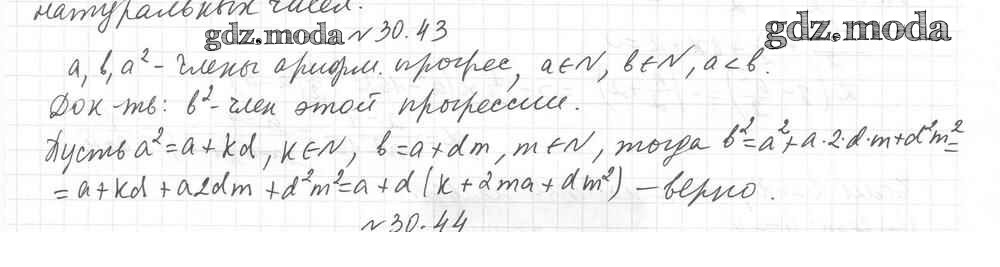 натуральных чисел.
gdz.moda
gdz.moda
№30.43
a, b, a² - члены арифм. прогрес, a∈N, b∈N, a<b.
Док-ть: b² - член этой прогрессии.
Пусть a²=a+kd, k∈N, b=a+dm, m∈N, тогда b²=a²+a·2·d·m+d²m²=
=a+kd+a2dm+d²m²=a+d(k+2ma+dm²) – верно.
№30.44